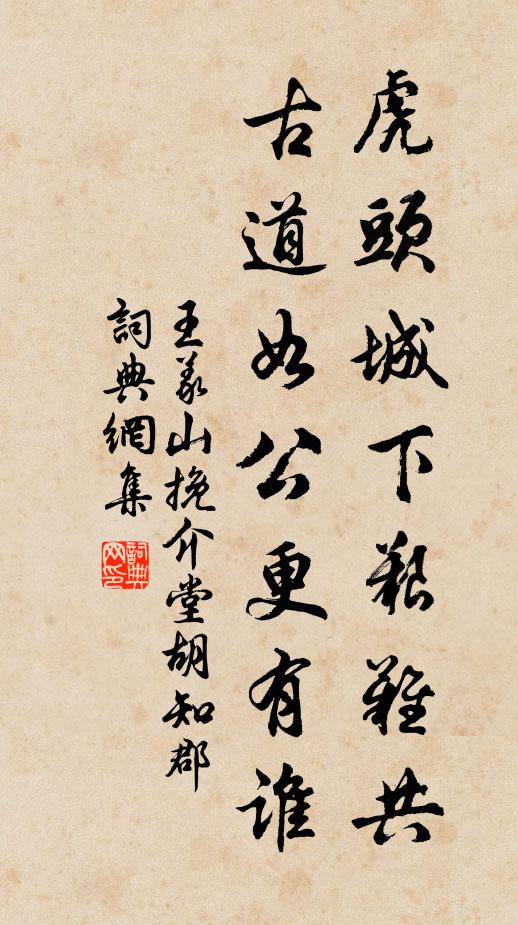 虎頭城下艱難共
古道如公更有誰
王義山挽介堂胡知郡
詞典網集
詞典
网印